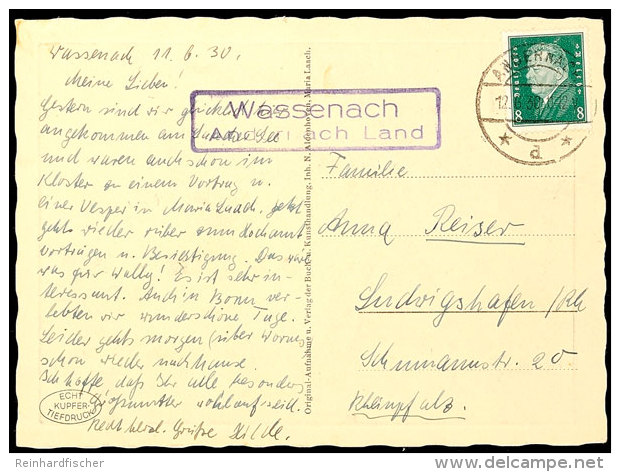 Wassenach 11.6.30.
Meine Lieben!
Gestern sind wir glücklich hier
angekommen am Laacher See
und waren auch schon im
Kloster zu einem Vortrag u.
einer Vesper in Maria Laach. Jetzt
gehts wieder rüber zum Hochamt
Vorträgen u. Besichtigung. Das wäre
was für Wally! Es ist sehr in-
teressant. Auch in Bonn ver-
lebten wir wunderschöne Tage.
Leider gehts morgen über Worms
schon wieder nachhause.
Ich hoffe daß Ihr alle besonders
Großmutter wohlauf seid.
Recht herzl. Grüße Hilde.
ECHT
KUPFER-
TIEFDRUCK
Wassenach
Andernach Land
Original-Aufnahme u. Verlag der Buch- u. Kunsthandlung, Inh. N. Maria Laach.
ANDERNACH
12.6.30
d
8 8
Familie
Anna Reiser
Ludwigshafen /Rh
Schumannstr. 20.
Rheinpfalz.
Reinhardfischer
delcampe.net